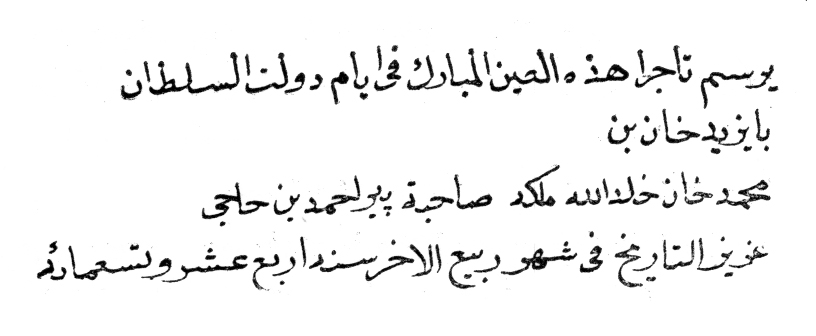 برسم تاجرا هذه العين المبارك فى ايام دولت السلطان
بايزيد خان بن
محمد خان خلد الله ملكه صاحبة پير احمد بن حاجى
عزيز التاريخ فى شهر ربيع الاخر سنه اربع عشر وتسعمائه